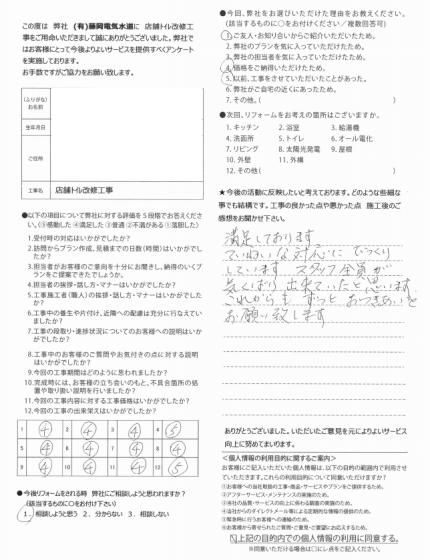 この度は 弊社 (有)藤岡電気水道に 店舗トイレ改修工
事をご用命いただきまして誠にありがとうございました。弊社で
はお客様にとって今後よりよいサービスを提供すべくアンケート
を実施しております。
お手数ですがご協力をお願い致します。
(ふりがな)
お名前
生年月日
ご住所
工事名 店舗トイレ改修工事
●以下の項目について弊社に対する評価を5段階でお答えださ
い。(⑤感動した ④満足した ③普通 ②不満がある ①落胆した)
1.受付時の対応はいかがでしたか?
2.訪問からプラン作成、見積までの日数(時間)はいかがでし
たか?
3.担当者がお客様のご意向を十分にお聞きし、納得のいくプ
ランをご提案できたでしょうか。
4.担当者の挨拶・話し方・マナーはいかがでしたか?
5.工事施工者(職人)の挨拶・話し方・マナーはいかがでし
たか?
6.工事中の養生や片付け、近隣への配慮は充分に行なえてい
ましたか?
7.工事の段取り・進捗状況についてのお客様への説明はいか
がでしたか?
8.工事中のお客様のご質問やお気付きの点に対する説明
はいかがでしたか?
9.今回の工事期間はどのように思われましたか?
10.完成時には、お客様の立ち会いのもと、不具合箇所の処
置や取り扱い説明を行いましたか?
11.今回の工事内容に対する工事価格はいかがでしたか?
12.今回の工事の出来栄えはいかがでしたか?
1 ④ 2 ④ 3 ④ 4 ⑤
5 ④ 6 ④ 7 ④ 8 ④
9 ④ 10 ④ 11 ④ 12 ⑤
●今後リフォームをされる時 弊社にご相談しようと思われますか?
(該当するものに〇をお付け下さい)
1.相談しようと思う 2.分からない 3.相談しない
●今回、弊社をお選びいただけた理由をお教えください。
(該当するものに〇をお付けください/複数回答可)
1.ご友人・お知り合いからご紹介いただいたため。
2.弊社のプランを気に入っていただけたため。
3.弊社の担当者を気に入っていただけたため。
4.価格をご納得いただけたため。
5.以前、工事をさせていただいたことがあった。
6.弊社がご自宅の近くにあったため。
7.その他。( )
●次回、リフォームをお考えの箇所はございますか。
1.キッチン 2.浴室 3.給湯機
4.洗面所 5.トイレ 6.オール電化
7.リビング 8.太陽光発電 9.屋根
10.外壁 11.外構
12.その他( )
★今後の活動に反映したいと考えております。どのような些細な
事でも結構です。工事の良かった点や悪かった点 施工後のご
感想をお聞かせ下さい。
満足しております
ていねいな対応に びっくり
しています スタッフ全員が
気くばり 出来ていたと思います
これからも ずっと おつきあいを
お願い致します
ありがとうございました。いただいたご意見を元によりよいサービス
向上に努めてまいります。
<個人情報の利用目的に関するご案内>
お客様にご記入いただいた個人情報は、以下の目的の範囲内で利用させ
ていただきます。これらの利用目的について同意いただけますか?
①お客様への当社取扱の工事・商品・サービスやプランをご提供するため。
②アフターサービス・メンテナンスの実施のため。
③当社の品質・サービスの向上に係わる調査の実施のため。
④当社からのダイレクトメール等による定期的な情報の提供のため。
⑤緊急時に行うお客様への連絡のため。
⑥お客様から寄せられたご質問・ご意見・ご要望にお応えするため。
上記の目的内での個人情報の利用に同意する。
※同意いただける場合は□にレ点をご記入ください。